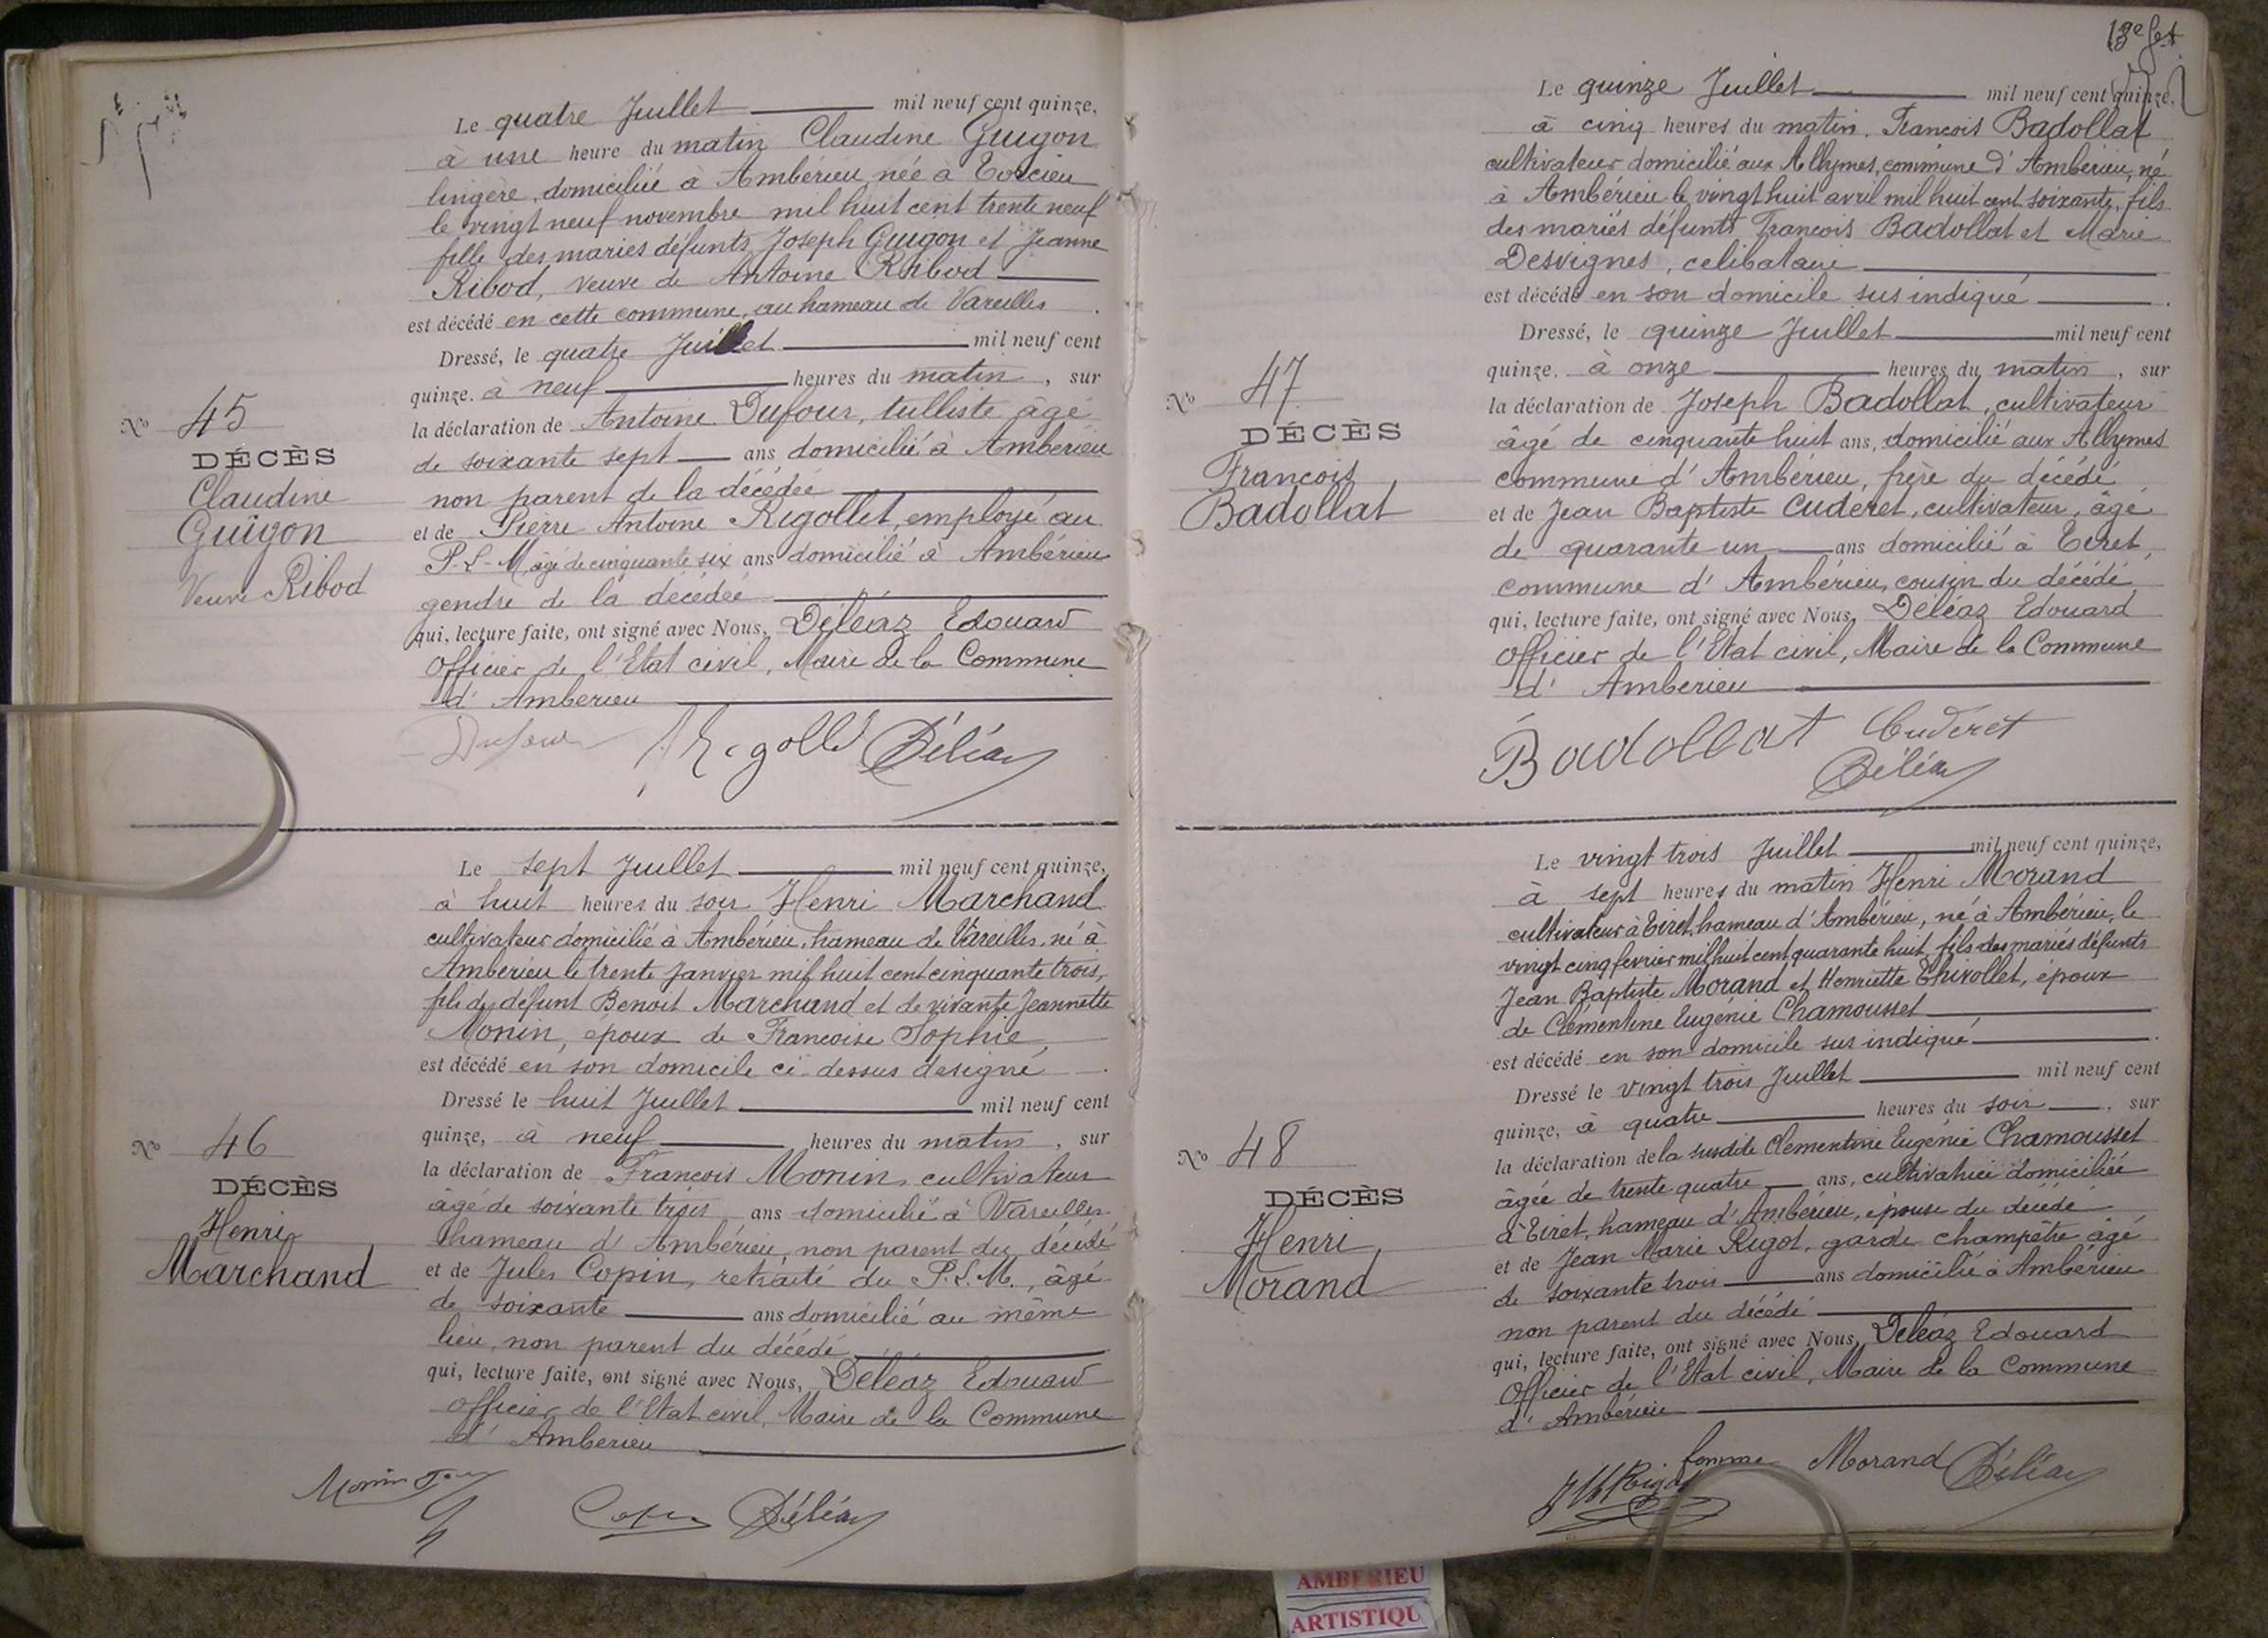 Le quatre Juillet mil neuf cent quinze,
à une heure du matin Claudine Guigon
lingère, domiciliée à Ambérieu, née à Torcieu
le vingt neuf novembre mil huit cent trente neuf
fille des mariés défunts Joseph Guigon et Jeanne
Ribod, veuve de Antoine Ribod
est décédé en cette commune, au hameau de Vareilles
Dressé, le quatre Juillet mil neuf cent
quinze. à neuf heures du matin, sur
la déclaration de Antoine Dufour, tulliste âgé
de soixante sept ans domicilié à Ambérieu
non parent de la décédée
et de Pierre Antoine Rigollet, employé au
P-L-M, âgé de cinquante six ans domicilié à Ambérieu
gendre de la décédée
qui, lecture faite, ont signé avec Nous, Déléaz Edouard
Officier de l'Etat civil, Maire de la Commune
d'Amberieu
Dufour Rigollet Déléaz
No 45
DÉCÈS
Claudine
Guigon
Veuve Ribod
Le sept Juillet mil neuf cent quinze,
à huit heures du soir Henri Marchand
cultivateur domicilié à Ambérieu, hameau de Vareilles, né à
Ambérieu le trente Janvier mil huit cent cinquante trois,
fils du défunt Benoit Marchand et de vivante Jeannette
Monin, époux de Francoise Sophie,
est décédé en son domicile ci-dessus designé
Dressé le huit Juillet mil neuf cent
quinze, à neuf heures du matin, sur
la déclaration de François Monin, cultivateur
âgé de soixante trois ans domicilié à Vareilles
hameau d'Ambérieu, non parent du décédé
et de Jules Copin, retraité du P.L.M., âgé
de soixante ans domicilié au même
lieu, non parent du décédé
qui, lecture faite, ont signé avec Nous, Déléaz Edouard
Officier de l'Etat civil, Maire de la Commune
d'Amberieu
Monin Copin Déléaz
No 46
DÉCÈS
Henri
Marchand
Le quinze Juillet mil neuf cent quinze,
à cinq heures du matin. François Badollat
cultivateur domicilié aux Allymes, commune d'Ambérieu, né
à Ambérieu le vingt huit avril mil huit cent soixante, fils
des mariés défunts François Badollat et Marie
Desvignes, celibataire
est décédé en son domicile sus indiqué.
Dressé, le quinze Juillet mil neuf cent
quinze. à onze heures du matin, sur
la déclaration de Joseph Badollat, cultivateur
âgé de cinquante huit ans, domicilié aux Allymes
commune d'Ambérieu, frère du décédé
et de Jean Baptiste Cuderet, cultivateur, âgé
de quarante un ans domicilié à Tiret,
commune d'Ambérieu, cousin du décédé
qui, lecture faite, ont signé avec Nous, Déléaz Edouard
Officier de l'Etat civil, Maire de la Commune
d'Amberieu
Badollat Cuderet
Déléaz
No 47
DÉCÈS
François
Badollat
Le vingt trois Juillet mil neuf cent quinze,
à sept heures du matin Henri Morand
cultivateur à Tiret, hameau d'Ambérieu, né à Ambérieu, le
vingt cinq fevrier mil huit cent quarante huit, fils des mariés défunts
Jean Baptiste Morand et Henriette Thivollet, époux
de Clémentine Eugénie Chamousset
est décédé en son domicile sus indiqué.
Dressé le vingt trois Juillet mil neuf cent
quinze, à quatre heures du soir, sur
la déclaration de la susdite Clementine Eugénie Chamousset
âgée de trente quatre ans, cultivatrice domiciliée
à Tiret, hameau d'Ambérieu, épouse du décédé
et de Jean Marie Rigot, garde champêtre âgé
de soixante trois ans domicilié à Ambérieu
non parent du décédé
qui, lecture faite, ont signé avec Nous, Déléaz Edouard
Officier de l'Etat civil, Maire de la Commune
d'Ambérieu
JM Rigot femme Morand Déléaz
No 48
DÉCÈS
Henri
Morand
AMBERIEU
ARTISTIQU